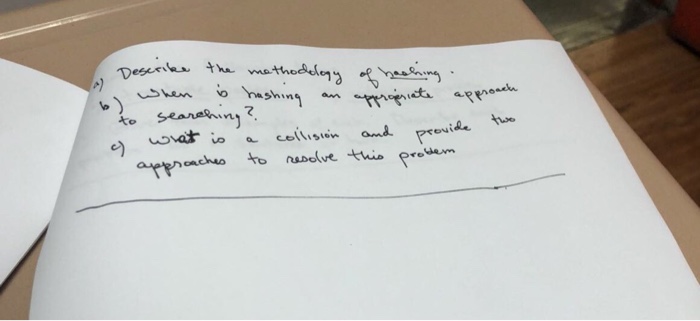 a) Describe the methodology of hashing.
b) When is hashing an appropriate approach
to searching?
c) what is a collision and provide two
approaches to resolve this problem